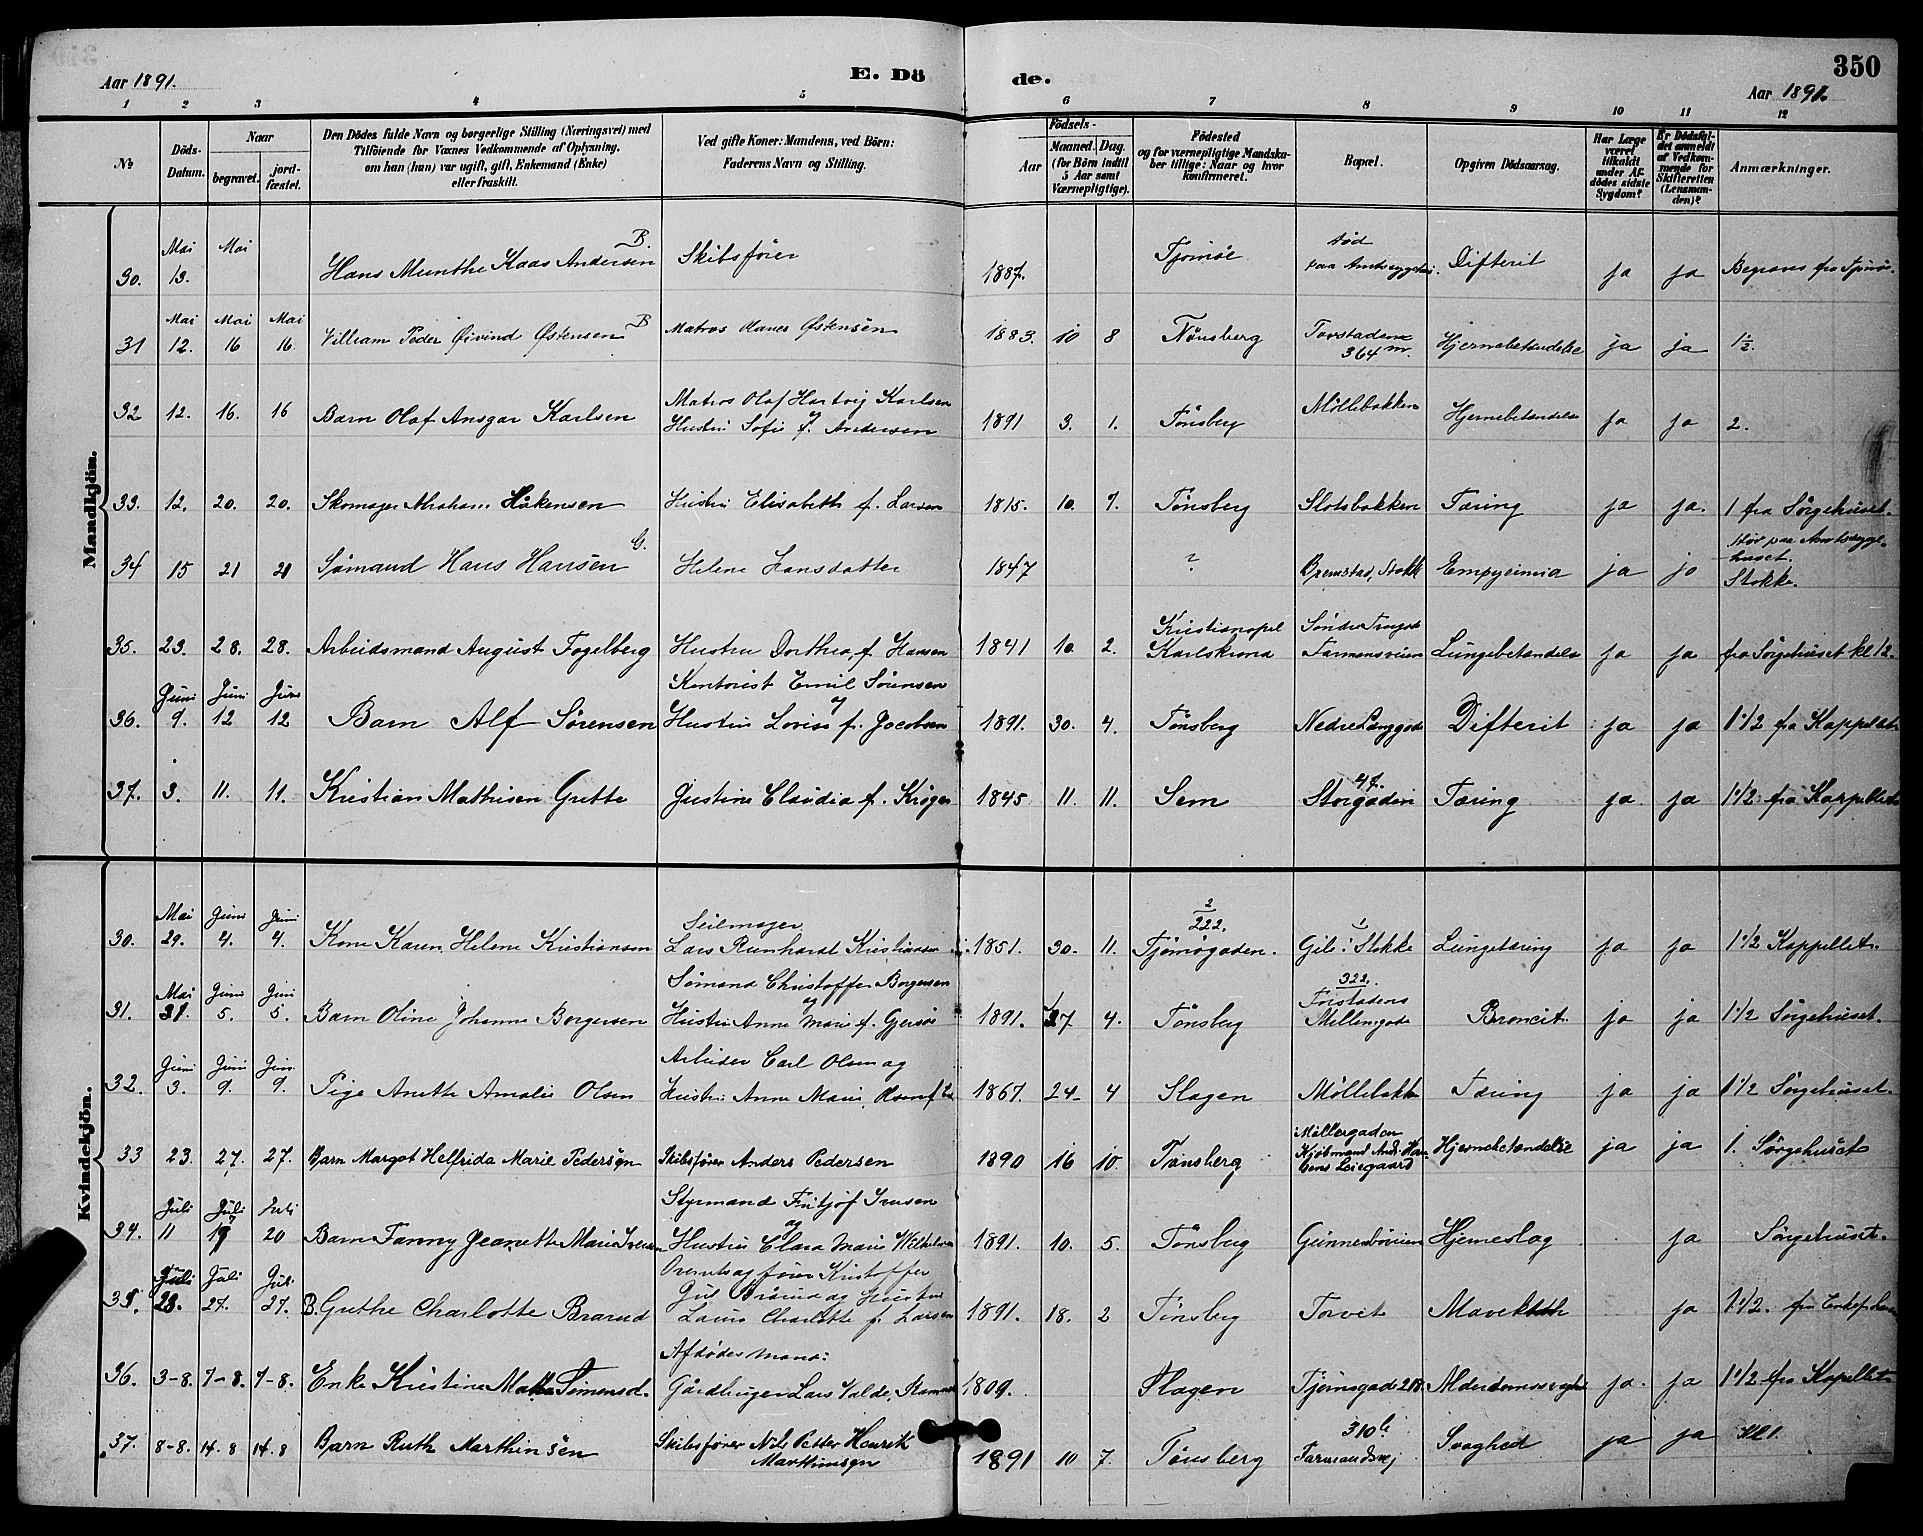 350
Aar 1891.
E. Dö
de.
Aar 1891.
1 2 3 4 5 6 7 8 9 10 11 12
№
Döds-Datum.
Naar
begravet.
jord-fæstet.
Den Dödes fulde Navn og borgerlige Stilling (Næringsvei) med
Tilföiende for Voxnes Vedkommende af Oplysning,
om han (hun) var ugift, gift, Enkemand (Enke)
eller fraskilt.
Ved gifte Koner: Mandens, ved Börn:
Faderens Navn og Stilling.
Födsels-
Aar
Maaned. Dag.
(for Börn indtil
5 Aar samt
Værnepligtige).
Födested
og for værnepligtige Mandska-
ber tillige: Naar og hvor
konfirmeret.
Bopæl.
Opgiven Dödsaarsag.
Har Læge
været
tilkaldt
under Af-
dödes sidste
Sygdom?
Er Dödsfal-
det anmeldt
af Vedkom-
mende for
Skifteretten
(Lensman-
den)?
Anmærkninger.
Mandkjön.
Mai Mai
30. 13. Hans Munthe Kaas Andersen B. Skibsfører 1887. Tjømøe død paa Amtssygehus. Difterit ja ja Begraves fra Tjømøe.
Mai Mai Mai
31 12. 16 16. William Peder Øivind Østensen B Matros Hanes Østensen 1883. 10 8 Tønsberg 364 Hjernebetændelse ja ja 1½
32 12. 16. 16 Barn Olaf Ansgar Karlsen Matros Olaf Hartvig Karlsen og
Hustru Sofie f. Andersen 1891 3. 1. Tønsberg Møllebakken Hjernebetændelse ja ja 2.
33. 12. 20. 20. Skomager Abraham Håkensen Hustru Elisabeth f. Larsen 1815. 10. 7. Tønsberg Slotsbakken Tæring ja ja. 1 fra Sørgehuset.
34 15 21 21 Sømand Hans Hansen G. Helene Hansdatter 1847 ? Bremstad, Stokk Empyeimia ja ja død paa Amtssyge-
huset.
Stokke.
35. 23. 28. 28. Arbeidsmand August Fogelberg Hustru Dorthea, f. Hansen 1841 10. 2. Kristianopel
Karlskrona Farmansveien Lungebetændelse ja ja fra Sørgehuset kl 12.
Juni Juni Juni
36. 9. 12 12. Barn Alf Sørensen Kontorist Emil Sørensen og
Hustru Lovise f. Jacobsen 1891. 30. 4. Tønsberg Nedre Langgade Difterit ja ja 1½ fra Kappellet
37. 3. 11. 11. Kristian Mathisen Grette Justine Claudia f. Krøger 1845 11. 11. Sem 47.
Storgaden Tæring ja ja 1½ fra Kappellet
Kvindekjön.
Mai Juni Juni
30. 29. 4. 4. Kone Karen Helene Kristiansen Seilmager
Lars Reinhardt Kristiansen 1851. 30. 11. 2
222.
Tjømøgaden. Gile i Stokke Lungetæring ja ja 1½ Kappellet.
Mai Juni Juni
31. 31. 5. 5. Barn Oline Johanne Borgersen Sømand Christoffer Borgersen
og
Hustru Anne Marie f. 1891. 27 4. Tønsberg 322.
Forstadens
Møllergade Broncit. ja ja 1½ Sørgehuset.
Juni Juni Juni
32. 3. 9. 9. Pige Anette Amalie Olsen Arbeider Carl Olsen og
Hustru Anne Marie 1867. 24 4 Slagen Møllebakk Tæring ja ja 1½ Sørgehuset.
33 23. 27. 27. Barn Margot Helfrida Marie Pedersen Skibsfører Anders Pedersen 1890 16 10. Tønsberg Møllergaden
Kjøbmand And. Han-
sens Leiegaard Hjernebetændelse ja ja 1. Sørgehuset
Juli Juli Juli
34. 11 19 20 Barn Fanny Jeanette Marie Iversen Styrmand Fritjof Iversen
og
Hustru Clara Marie Wilhelmsen 1891. 10. 5. Tønsberg Hjerneslag ja Sørgehuset.
Juli Juli Juli
35. 23. 27. 27. B. Grethe Charlotte Brarud fører Kristoffer
Brarud og Hustru
Laura Charlotte f. Larsen 1891. 18. 2 Tønsberg Torvet ja 1½. fra
36. 3-8. 7-8. 7-8. Enke Kristine Mathea Simensd. Afdødes mand:
Gårdbruger Lars Valde, Ramnæs 1809. Slagen Tjømøgade Alderdomssvaghed ja. ja 1½ fra Kapellet
37. 8-8. 14.8 14.8 Barn Ruth Marthinsen Skibsfører Nils Petter Henrik
Marthinsen 1891 10 7. Tønsberg 310b
Farmandsvej Svaghed ja ja Kl 1.